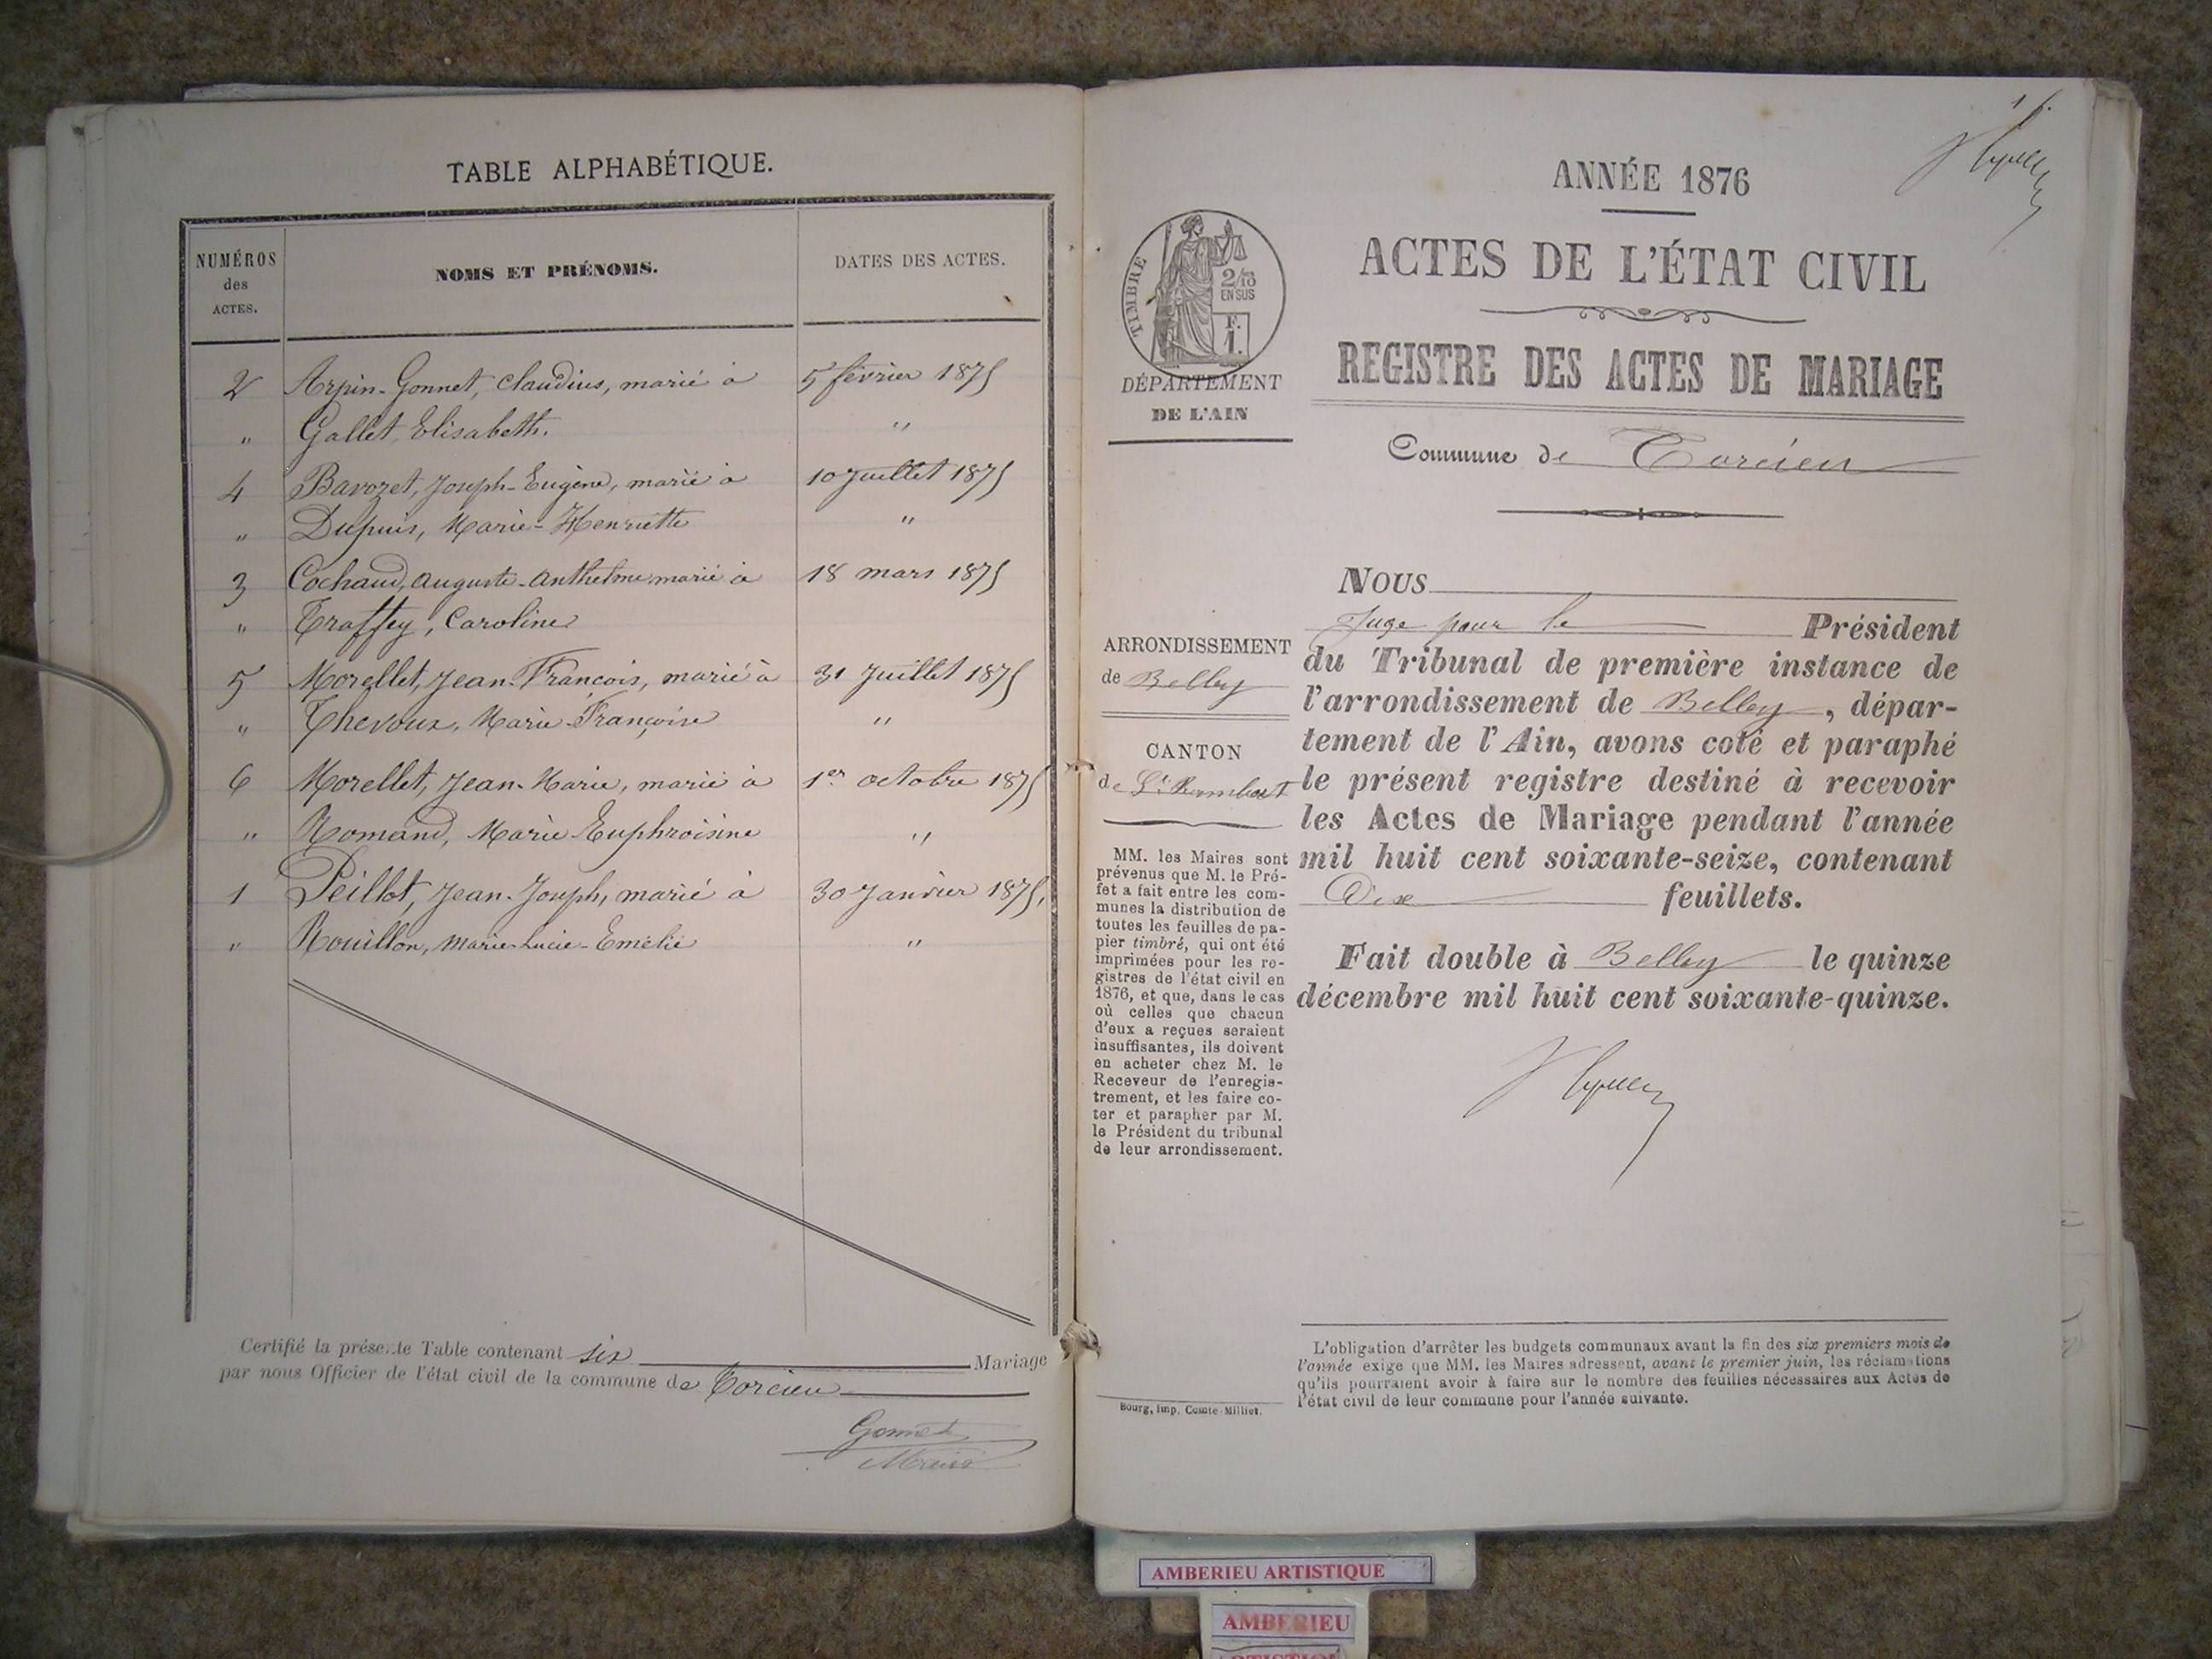 TABLE ALPHABÉTIQUE.
NUMÉROS
des
ACTES.
NOMS ET PRÉNOMS.
DATES DES ACTES.
2 Arpin-Gonnet, Claudius, marié à 5 février 1875
" Gallet, Elisabeth. "
4 Bavozet, Joseph-Eugène, marié à 10 Juillet 1875
" Dupuis, Marie-Henriette "
3 Cochaud, Auguste-Anthelme marié à 18 mars 1875
" Traffey, Caroline
5 Morellet, Jean-François, marié à 31 Juillet 1875
" Thevoux, Marie-Françoise "
6 Morellet, Jean-Marie, marié à 1er octobre 1875
" Romand, Marie Euphroisine "
1 Peillot, Jean-Joseph, marié à 30 Janvier 1875.
" Rouillon, Marie-Lucie-Emélie "
Certifié la présente Table contenant six Mariage
par nous Officier de l'état civil de la commune de Torcieu
Gonnet
Maire
1 f.
ANNÉE 1876
ACTES DE L'ÉTAT CIVIL
REGISTRE DES ACTES DE MARIAGE
Commune de Torcieu
TIMBRE
2/10
EN SUS
F.
1.
DÉPARTEMENT
DE L'AIN
ARRONDISSEMENT
de Belley
CANTON
de St Rambert
MM. les Maires sont
prévenus que M. le Pré-
fet a fait entre les com-
munes la distribution de
toutes les feuilles de pa-
pier timbré, qui ont été
imprimées pour les re-
gistres de l'état civil en
1876, et que, dans le cas
où celles que chacun
d'eux a reçues seraient
insuffisantes, ils doivent
en acheter chez M. le
Receveur de l'enregis-
trement, et les faire co-
ter et parapher par M.
le Président du tribunal
de leur arrondissement.
Bourg, imp. Comte-Milliet.
NOUS
Juge pour le Président
du Tribunal de première instance de
l'arrondissement de Belley, dépar-
tement de l'Ain, avons coté et paraphé
le présent registre destiné à recevoir
les Actes de Mariage pendant l'année
mil huit cent soixante-seize, contenant
Dix feuillets.
Fait double à Belley le quinze
décembre mil huit cent soixante-quinze.
L'obligation d'arrêter les budgets communaux avant la fin des six premiers mois de
l'année exige que MM. les Maires adressent, avant le premier juin, les réclamations
qu'ils pourraient avoir à faire sur le nombre des feuilles nécessaires aux Actes de
l'état civil de leur commune pour l'année suivante.
AMBERIEU ARTISTIQUE
AMBERIEU
ARTISTIQUE